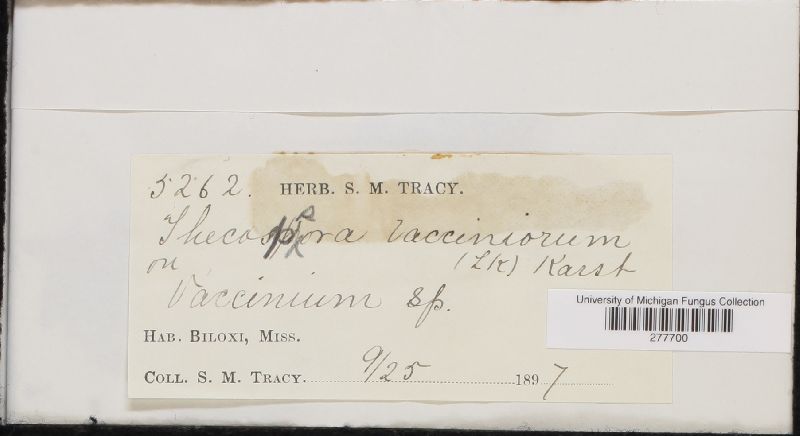 5262. HERB. S. M. TRACY.
Thecospora Vacciniorum
on (Lk) Karst
Vaccinium sp.
HAB. BILOXI, MISS.
COLL. S. M. TRACY. 9/25 1897
University of Michigan Fungus Collection
277700